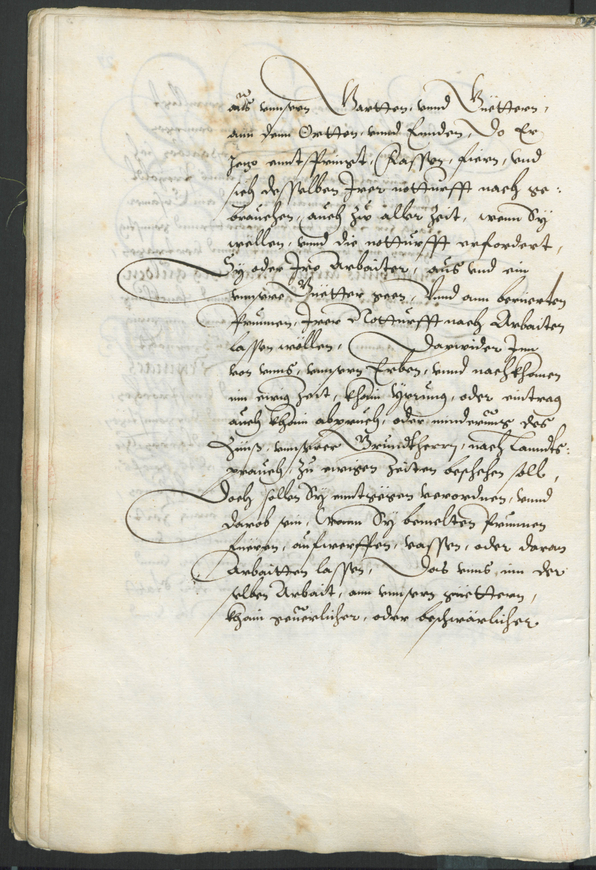 aus unnsern Gartten, unnd Güettern,
ann denn Ortten, unnd Ennden, Do Er
jezo enntspringt, Fassen, fieren, und
sich desselben Irer notturfft nach ge:
brauchen, auch zu aller Zeit, wenn Sy
wellen, unnd die notturfft erfordert,
Sy oder Ire Arbaiter, aus und ein
unnsere Güetter geen, Unnd ann berierten
Prunnen, Irer Notturfft nach Arbaiten
lassen wöllen, Darwider Inn
von unns, unnsern Erben, unnd nachkhomen
in ewig Zeit, khain Irrung, oder eintrag
auch khain abpruch, oder minderung des
Zinß, unnserer Grundtherrn, nach Lanndts:
prauch, zu ewigen Zeiten beschehen soll,
Doch sollen Sy enntgegen verordnen, unnd
darob sein, Wann Sy bemelten Prunnen
fieren, aufwerffen, fassen, oder daran
Arbaitten lassen, Das unns, inn der
selben Arbait, ann unnsern güettern,
khain geuerlicher, oder beschwärlicher